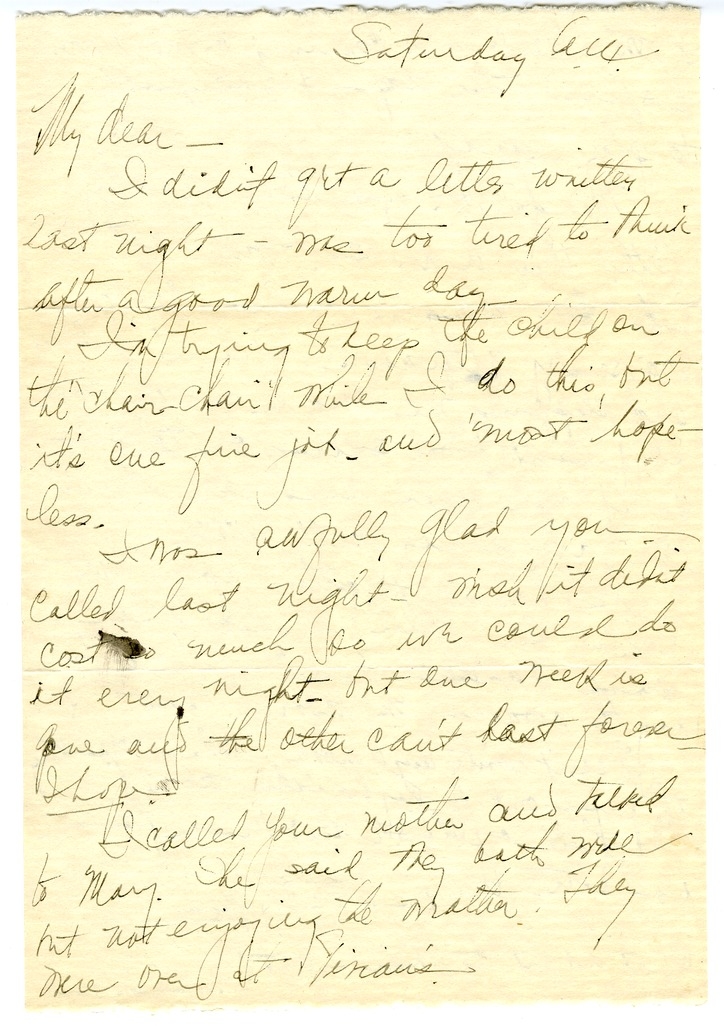 Saturday A.M.
My dear —
I didn't get a letter written
last night - was too tired to think
after a good warm day
I'm trying to keep the child on
the "chair-chair" while I do this, but
it's one fine job - and 'most hope-
less.
I was awfully glad you
called last night - wish it didn't
cost so much so we could do
it every night - but one week is
gone and the other can't last forever -
I hope -
I called your mother and talked
to Mary. She said they both were
but not enjoying the weather. They
were over at Vivian's